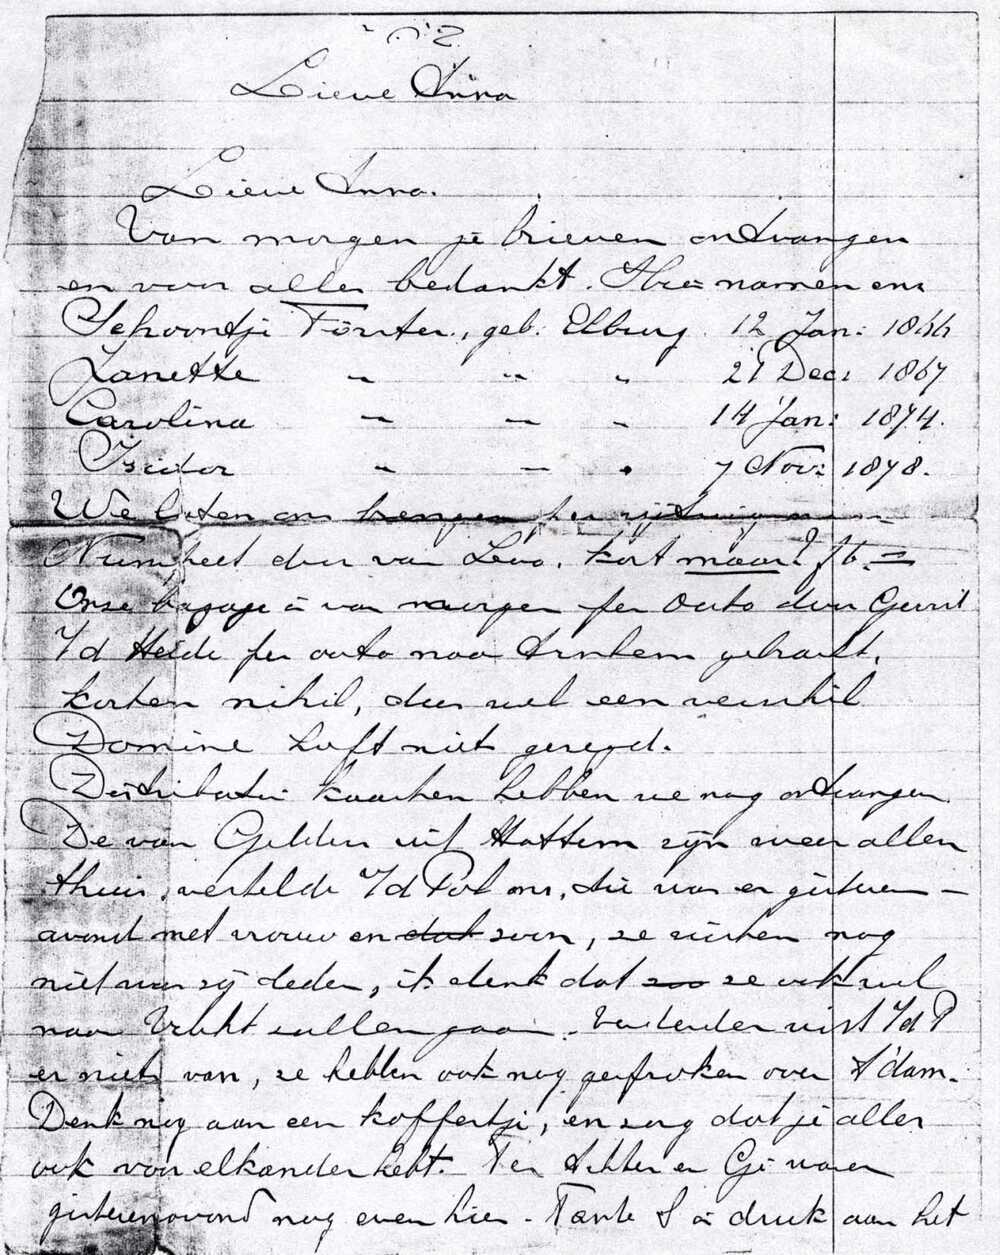 Lieve Anna
Lieve Anna.
Van morgen je brieven ontvangen
en voor alles bedankt. Hier namen enz
Schoontje Förster, geb: Elburg 12 Jan: 1866
Janette " " " 21 Dec: 1867
Carolina " " " 14 Jan: 1874.
Isidor " " " 7 Nov: 1878.
We laten ons brengen per rijtuig naar
Nunspeet door van Loo. kost maar? f 6.=
Onze bagage is van morgen per auto door Gerrit
v/d Heide per auto naar Arnhem gebracht,
kosten nihil, dus wel een verschil
Domine hoeft niets gezegd.
Distributie kaarten hebben we nog ontvangen
De van Gelders uit Hattem zijn weer allen
thuis, vertelde v/d Pol ons, die was er gisteren-
avond met vrouw en dat zoon, ze wisten nog
niet wat zij deden, ik denk dat zoo ze ook wel
naar Vught zullen gaan. Verder wist v/d P
er niets van, ze hebben ook nog gesproken over A'dam.
Denk nog aan een koffertje, en zorg dat je alles
ook voor elkander hebt. en Gé waren
gisterenavond nog even hier. Tante S is druk aan het